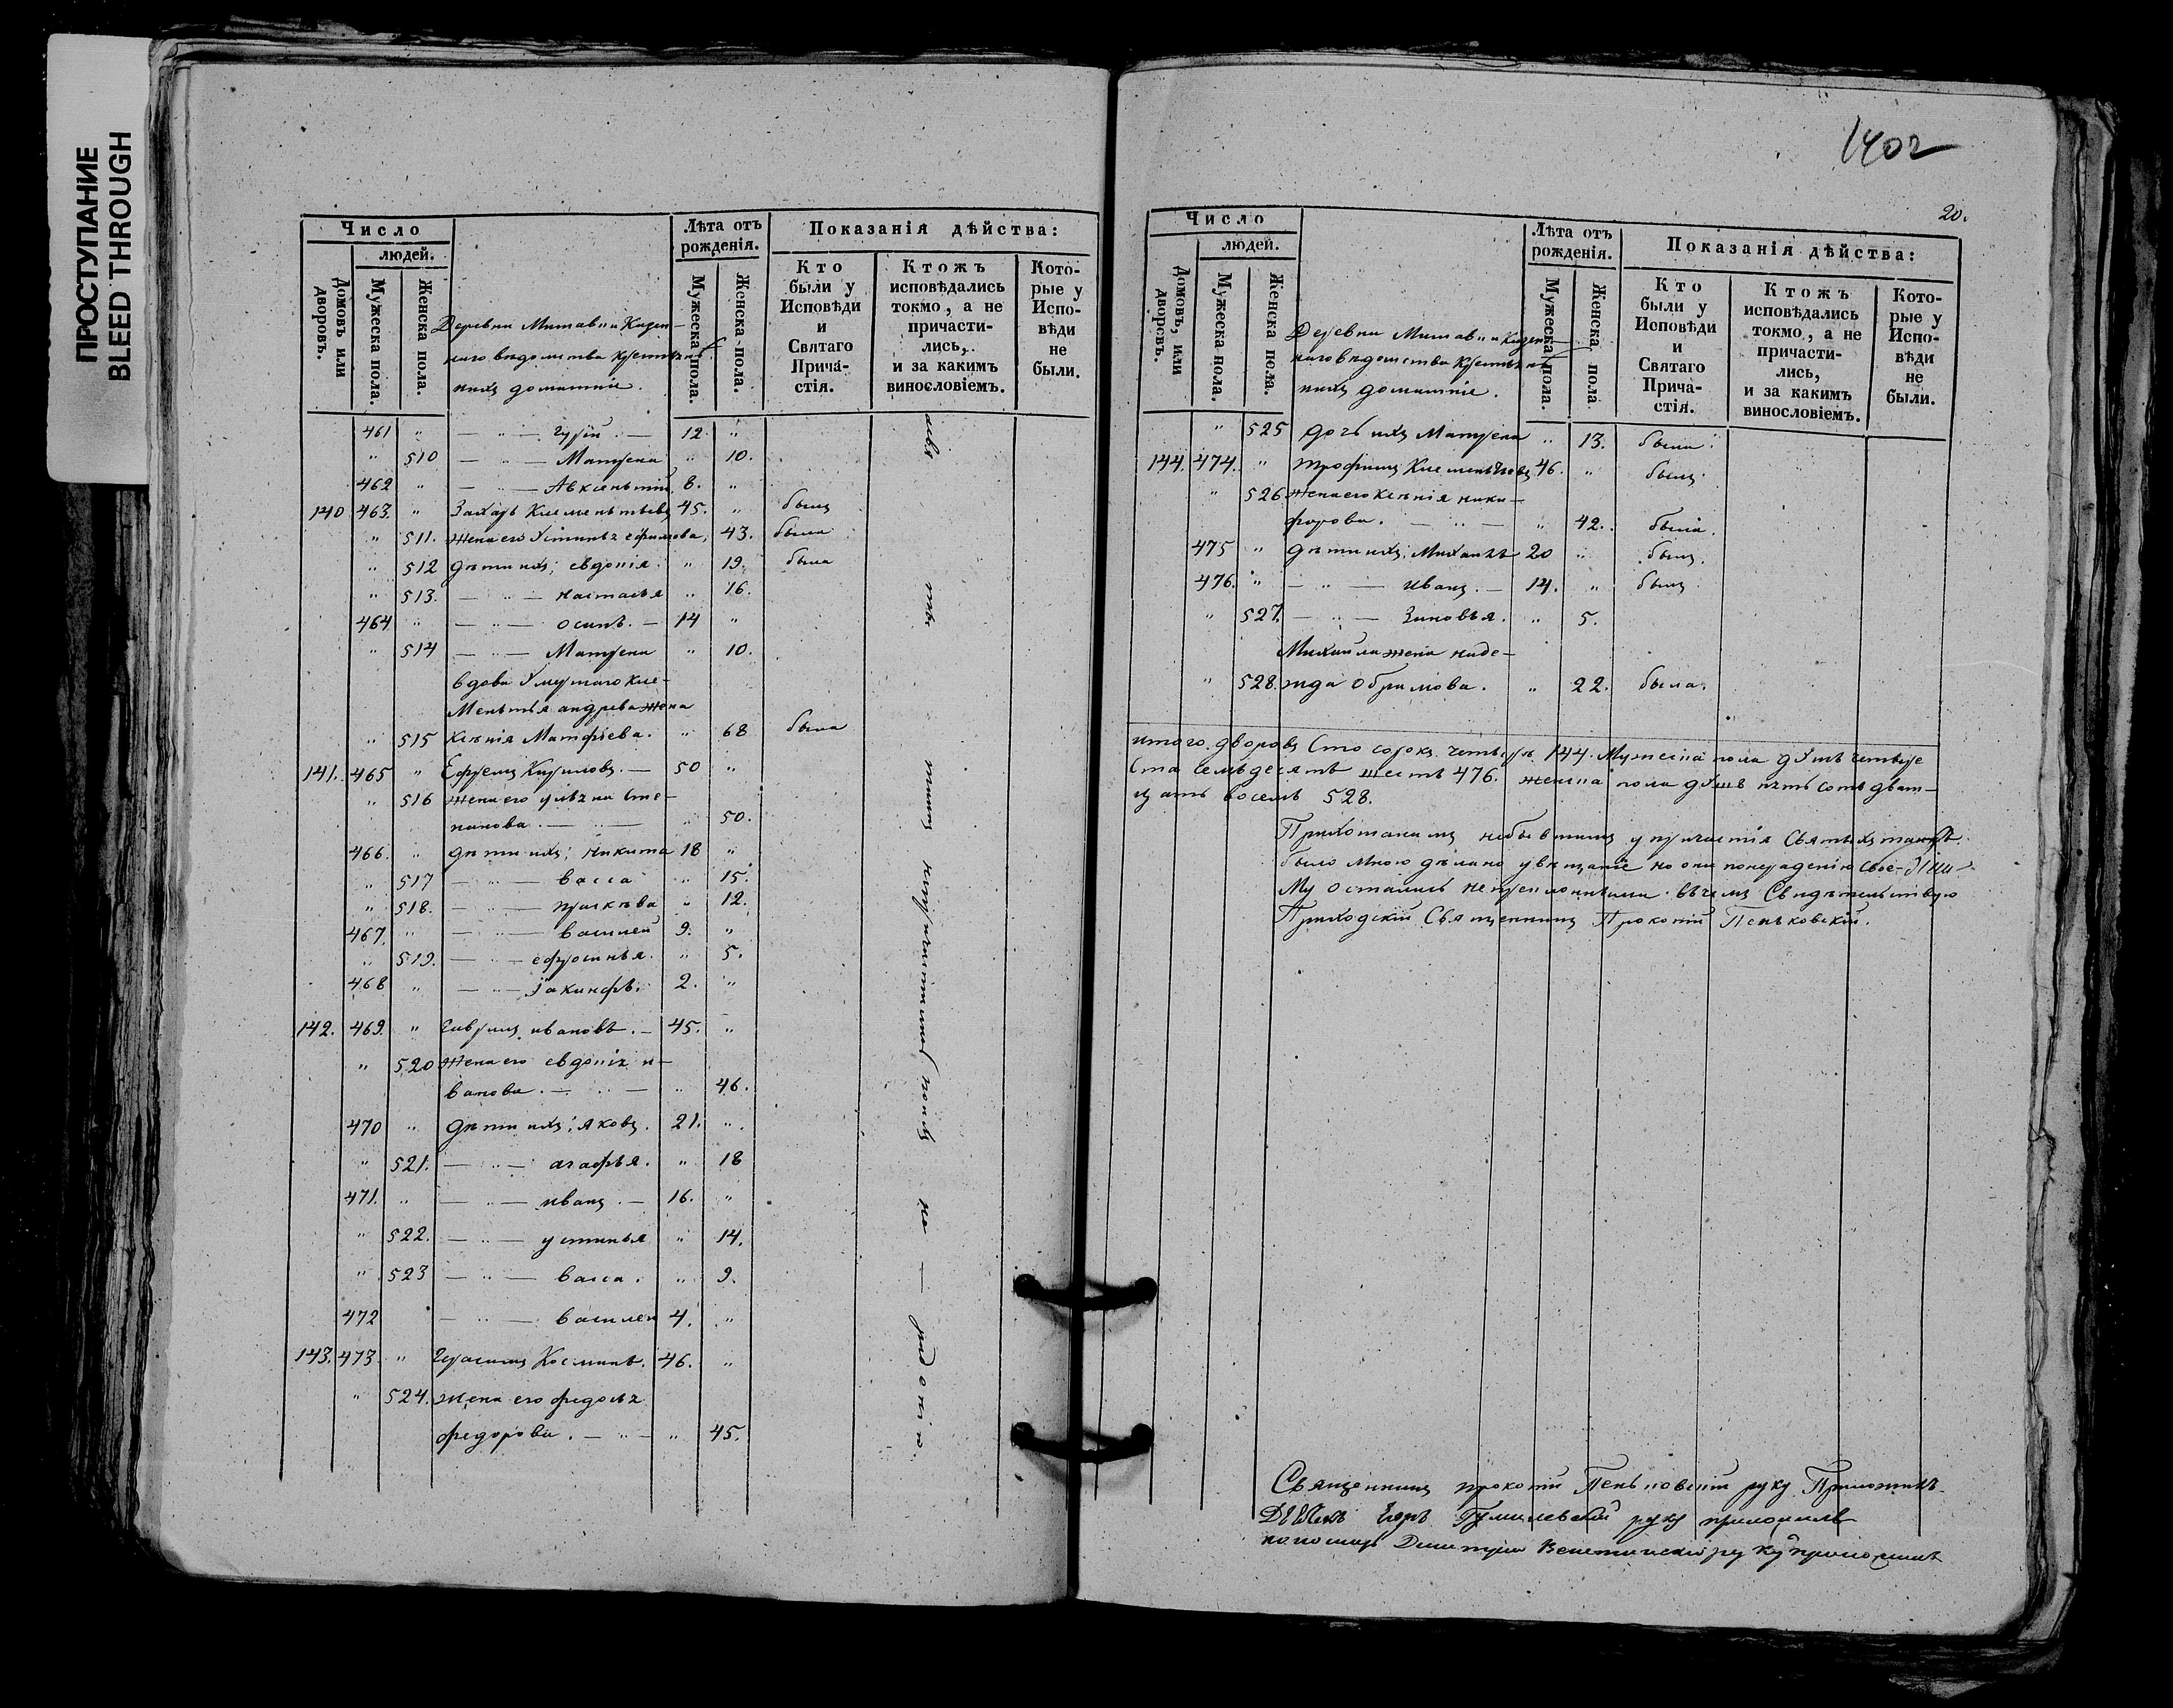 ПРОСТУПАНИЕ
BLEED THROUGH
Число
людей.
Домовъ или дворовъ.
Мужеска пола.
Женска пола.
Деревни Казен-
наго вѣдомства Крестьян
ихъ домашніе.
Лѣта отъ рожденія.
Мужеска пола.
Женска пола.
Показанія дѣйства:
Кто были у Исповѣди и Святаго Прича-стія.
Ктожъ исповѣдались токмо, а не причасти-лись, и за какимъ винословіемъ.
Кото-рые у Испо-вѣди не были.
461 " — " — гурій — 12. "
" 510 — " — Матрена " 10.
462 " — " — Авксентій 8. "
140 463. " Захаръ Клементьевъ 45. " былъ
" 511. жена его Ефимова, 43. была
" 512 дѣти ихъ; евдокія. " 19. была
" 513. — " — настасья " 16.
464 " — " — осипъ. — 14 "
" 514 — " — Матрена " 10.
вдова Умершаго Кле-
Ментья андрева жена
" 515 Ксенія Матфѣева. " 68 была
141. 465 " Ефремъ Кириловъ. — 50 "
" 516 жена его Сте-
панова. — " — " 50.
466. " дѣти ихъ; никита 18 "
" 517 — " — васса " 15.
" 518. — " — " 12.
467. " — " — василей 9. "
" 519. — " — ефросинья. " 5.
468 " — " — Іакинфъ. 2. "
142. 469. " Гаврила ивановъ. — 45. "
" 520 жена его евдокія и-
ванова. — " — " 46.
470 " дѣти ихъ; яковъ. 21. "
" 521. — " — агафья. " 18
471. " — " — иванъ. — 16. "
" 522. — " — устинья " 14.
" 523 — " — васса. " 9.
472 — " — василей 4. "
143. 473. " Герасимъ Косминъ. 46. "
" 524. жена его
федорова. — " — " 45.
1402
20.
Число
людей.
Домовъ, или дворовъ.
Мужеска пола.
Женска пола.
Деревни Казен-
наго вѣдомства Крестьян
ихъ домашніе.
Лѣта отъ рожденія.
Мужеска пола.
Женска пола.
Показанія дѣйства:
Кто были у Исповѣди и Святаго Прича-стія.
Ктожъ исповѣдались токмо, а не причасти-лись, и за какимъ винословіемъ.
Кото-рые у Испо-вѣди не были.
" 525 дочь ихъ Матрена " 13. была.
144. 474. " Трофимъ Клементьевъ 46. " былъ.
" 526 жена его Ксенія ники-
форова. — " — " 42. была.
475 " дѣти ихъ; Михаилъ 20 " былъ.
476. " — " — иванъ. — 14. " былъ.
" 527. — " — Зиновья. " 5.
Михаила жена наде-
" 528. жда " 22. была.
итого дворовъ Сто сорокъ четыре 144. Мужеска пола душъ четыре
Ста семьдесятъ шесть 476. женска пола душъ пять сотъ двад-
цать восемь 528.
Прихожанамъ небывшимъ у причастія Святыхъ таинъ
было мною дѣлано увѣщаніе но они понерадѣнію свое-
Му остались непреклонными. въчемъ Свидѣтельствую
Приходскій Священникъ Прокопій Пеньковскій.
Священникъ прокопій Пеньковскій руку Приложилъ
Дьяконъ Егоръ руку приложилъ
пономарь Димитрій руку приложилъ